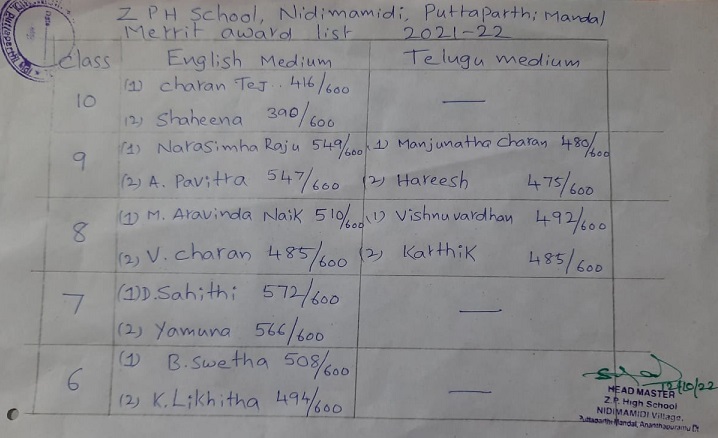 Z PH School, Nidimamidi, Puttaparthi Mandal
Merrit award list 2021-22
Class English Medium Telugu medium
10 (1) Charan Tej.. 416/600 —
(2) Shaheena 390/600
9 (1) Narasimha Raju 549/600 1) Manjunatha Charan 480/600
(2) A. Pavitra 547/600 (2) Hareesh 475/600
8 (1) M. Aravinda Naik 510/600 1) Vishnuvardhan 492/600
(2) V. Charan 485/600 (2) Karthik 485/600
7 (1) D. Sahithi 572/600 —
(2) Yamuna 566/600
6 (1) B. Swetha 508/600 —
(2) K. Likhitha 494/600
12/10/22
HEAD MASTER
Z.P. High School
NIDIMAMIDI Village,
Puttaparthi Mandal, Ananthapuramu Dt